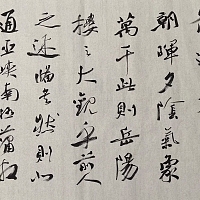 朝暉夕陰氣象
萬千此則岳陽
樓之大觀也前人
之述備矣然則北
通巫峽南極瀟湘